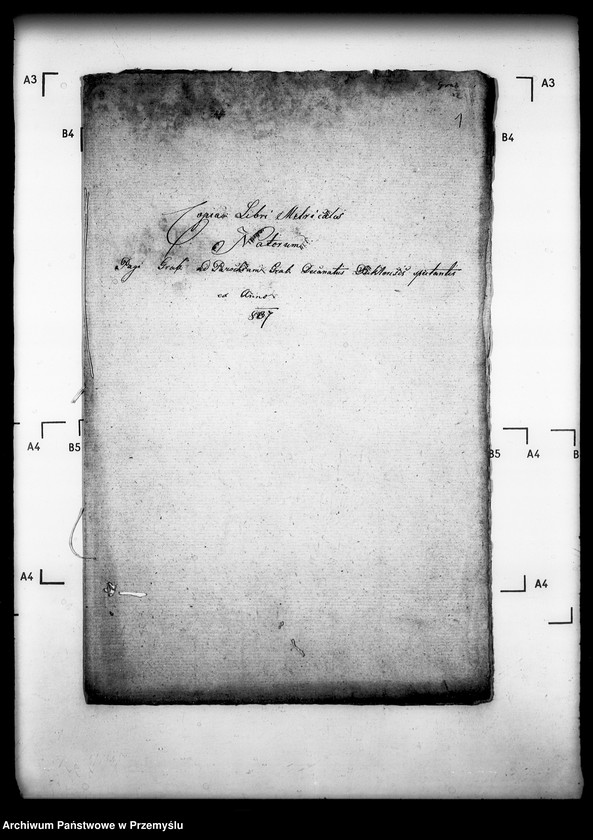 A3
A3
B4
B4
1
Copia Libri Metricalis
Natorum
Pagi Grab ad Parochiam Grab Decanatus spectantis
ex Anno
1837
A4
B5
B5
A4
B
A4
A4
Archiwum Państwowe w Przemyślu